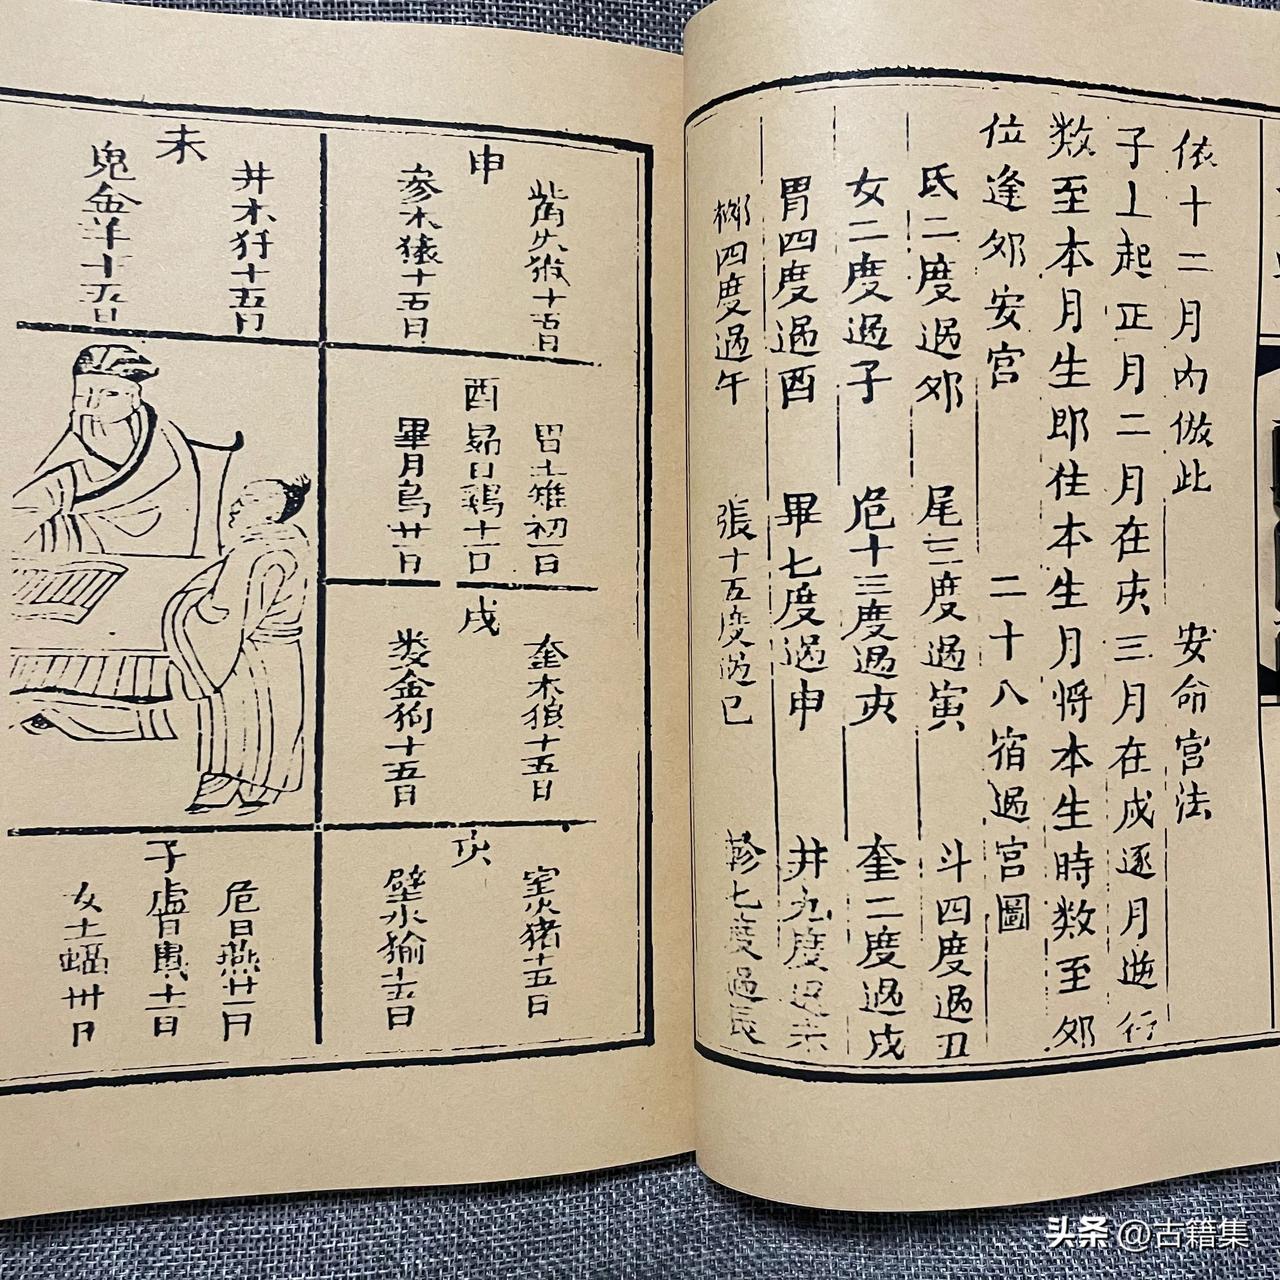 依十二月內倣此 安命宮法
子上起正月二月在亥三月在戌逐月逆行
数至本月生即住本生月将本生時数至卯
位逢卯安宮 二十八宿過宮圖
氐二度過卯 尾三度過寅 斗四度過丑
女二度過子 危十三度過亥 奎二度過戌
胃四度過酉 畢七度過申 井九度過未
柳四度過午 張十五度過巳 軫七度過辰
申
觜火猴十五日
參水猿十五日
未
井木犴十五日
鬼金羊十五日
酉
胃土雉初一日
昴日鷄十一日
畢月烏廿一日
戌
奎木狼十五日
娄金狗十五日
亥
室火猪十五日
壁水㺄十五日
子
危日燕廿一日
虛日鼠十一日
女土蝠卅日
头条 @古籍集